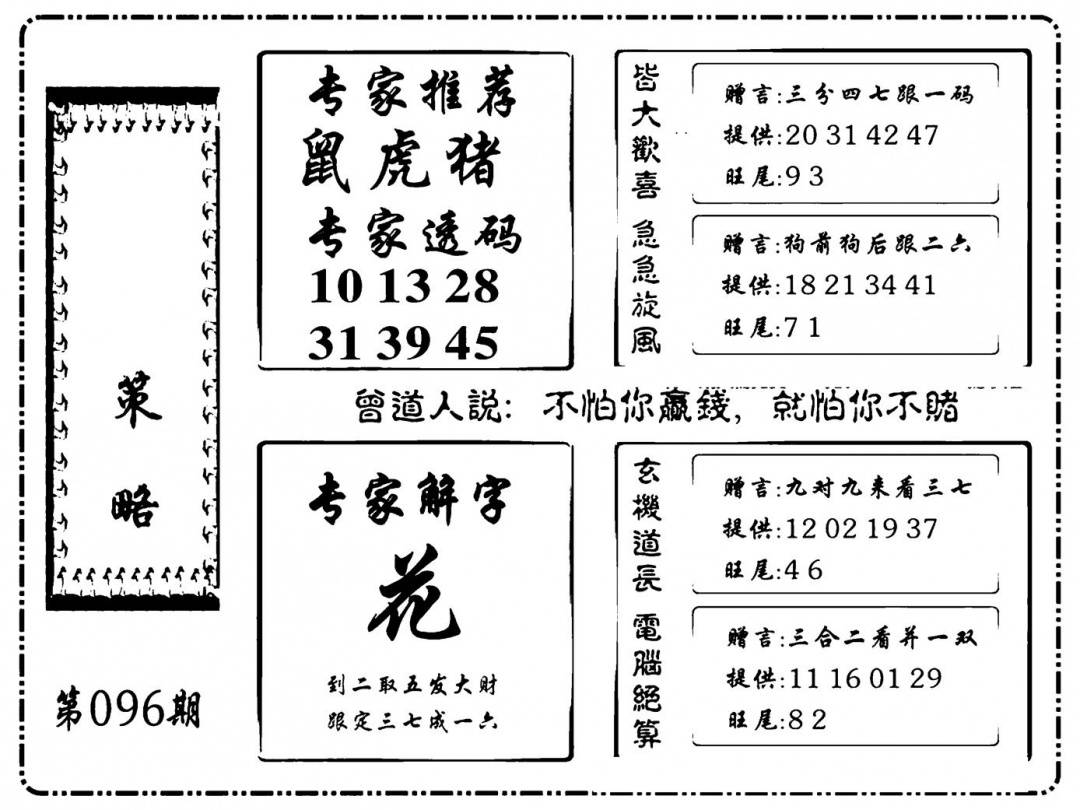 策略
第096期
专家推荐
鼠虎猪
专家透码
10 13 28
31 39 45
皆大歡喜
赠言:三分四七跟一码
提供:20 31 42 47
旺尾:9 3
急急旋風
赠言:狗前狗后跟二六
提供:18 21 34 41
旺尾:7 1
曾道人説：不怕你赢錢，就怕你不賭
专家解字
花
到二取五发大财
跟定三七成一六
玄機道長
赠言:九对九来看三七
提供:12 02 19 37
旺尾:4 6
電腦絕算
赠言:三合二看并一双
提供:11 16 01 29
旺尾:8 2